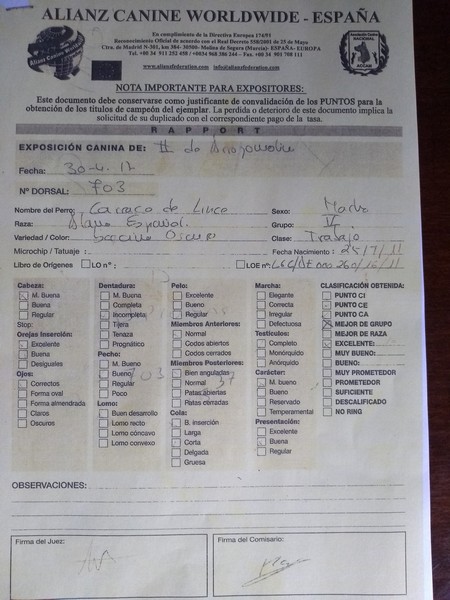 ALIANZ CANINE WORLDWIDE - ESPAÑA
En cumplimiento de la Directiva Europea 174/91
Reconocimiento Oficial de acuerdo con el Real Decreto 558/2001 de 25 de Mayo
Ctra. de Madrid N-301, km 384- 30500- Molina de Segura (Murcia)- ESPAÑA- EUROPA
www.alianzfederation.com info@alianzfederation.com
Alianz Canine Worldwide
NACIONAL
ACCAM
NOTA IMPORTANTE PARA EXPOSITORES:
Este documento debe conservarse como justificante de convalidación de los PUNTOS para la
obtención de los titulos de campeón del ejemplar. La perdida o deterioro de este documento implica la
solicitud de su duplicado con el correspondiente pago de la tasa.
RAPPORT
EXPOSICIÓN CANINA DE: II de
Fecha: 30-4.17
Nº DORSAL: 703
Nombre del Perro: Carraca de Lince Sexo: Macho
Raza: Alano Español. Grupo: IV
Variedad / Color: Oscuro Clase: Trabajo
Microchip / Tatuaje : Fecha Nacimiento: 25/7/11
Libro de Orígenes LO nº: LOE nº:
Cabeza: Dentadura: Pelo: Marcha: CLASIFICACIÓN OBTENIDA:
M. Buena M. Buena Excelente Elegante PUNTO CI
Buena Completa Bueno Correcta PUNTO CE
Regular Incompleta Miembros Anteriores: Irregular PUNTO CA
Stop: Tijera Normal Defectuosa MEJOR DE GRUPO
Orejas Inserción: Tenaza Codos abiertos Testículos: MEJOR DE RAZA
Excelente Prognático Codos cerrados Completo EXCELENTE:
Buena Pecho: Miembros Posteriores: Monórquido MUY BUENO:
Desiguales M. Bueno Bien anguladas Anórquido BUENO:
Ojos: Bueno 703 Normal 37 Carácter: MUY PROMETEDOR
Correctos Regular Patas abiertas M. bueno PROMETEDOR
Forma oval Poco Patas cerradas Bueno SUFICIENTE
Forma almendrada Lomo: Cola: Reservado DESCALIFICADO
Claros Buen desarrollo B. inserción Temperamental NO RING
Oscuros Lomo recto Larga Presentación:
Lomo cóncavo Corta Excelente
Lomo convexo Delgada Buena
Gruesa Regular
OBSERVACIONES:
Firma del Juez: Firma del Comisario: